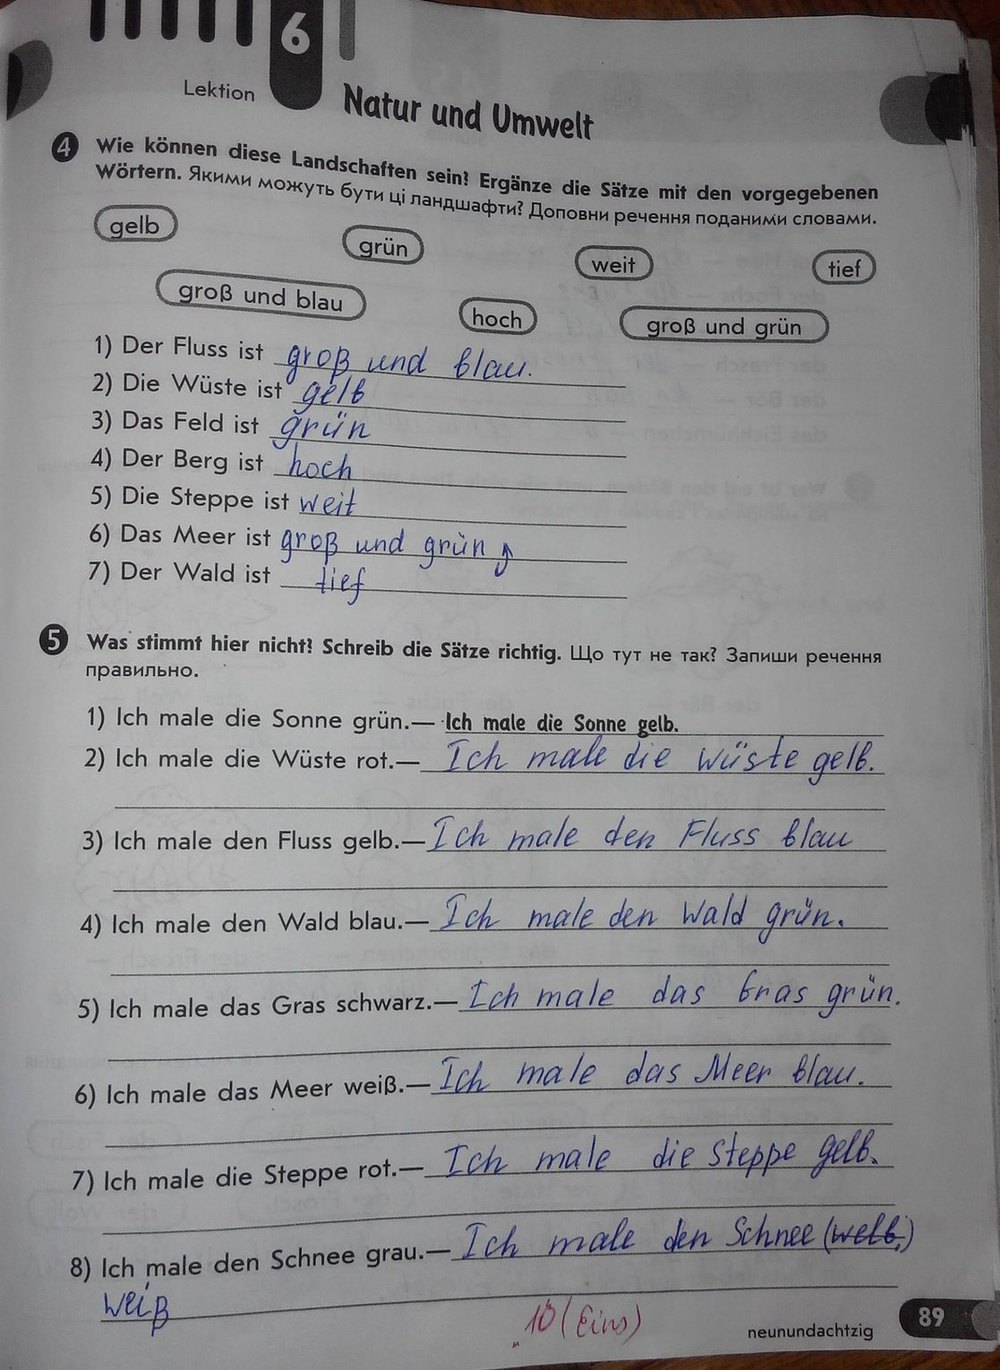 6
Lektion
Natur und Umwelt
4 Wie können diese Landschaften sein? Ergänze die Sätze mit den vorgegebenen
Wörtern. Якими можуть бути ці ландшафти? Доповни речення поданими словами.
gelb
grün
weit
tief
groß und blau
hoch
groß und grün
1) Der Fluss ist groß und blau.
2) Die Wüste ist gelb
3) Das Feld ist grün
4) Der Berg ist hoch
5) Die Steppe ist weit
6) Das Meer ist groß und grün
7) Der Wald ist tief
5 Was stimmt hier nicht? Schreib die Sätze richtig. Що тут не так? Запиши речення
правильно.
1) Ich male die Sonne grün.— Ich male die Sonne gelb.
2) Ich male die Wüste rot.— Ich male die Wüste gelb.
3) Ich male den Fluss gelb.— Ich male den Fluss blau
4) Ich male den Wald blau.— Ich male den Wald grün.
5) Ich male das Gras schwarz.— Ich male das Gras grün.
6) Ich male das Meer weiß.— Ich male das Meer blau.
7) Ich male die Steppe rot.— Ich male die Steppe gelb.
8) Ich male den Schnee grau.— Ich male den Schnee
weiß
10 (Eins)
89
neunundachtzig